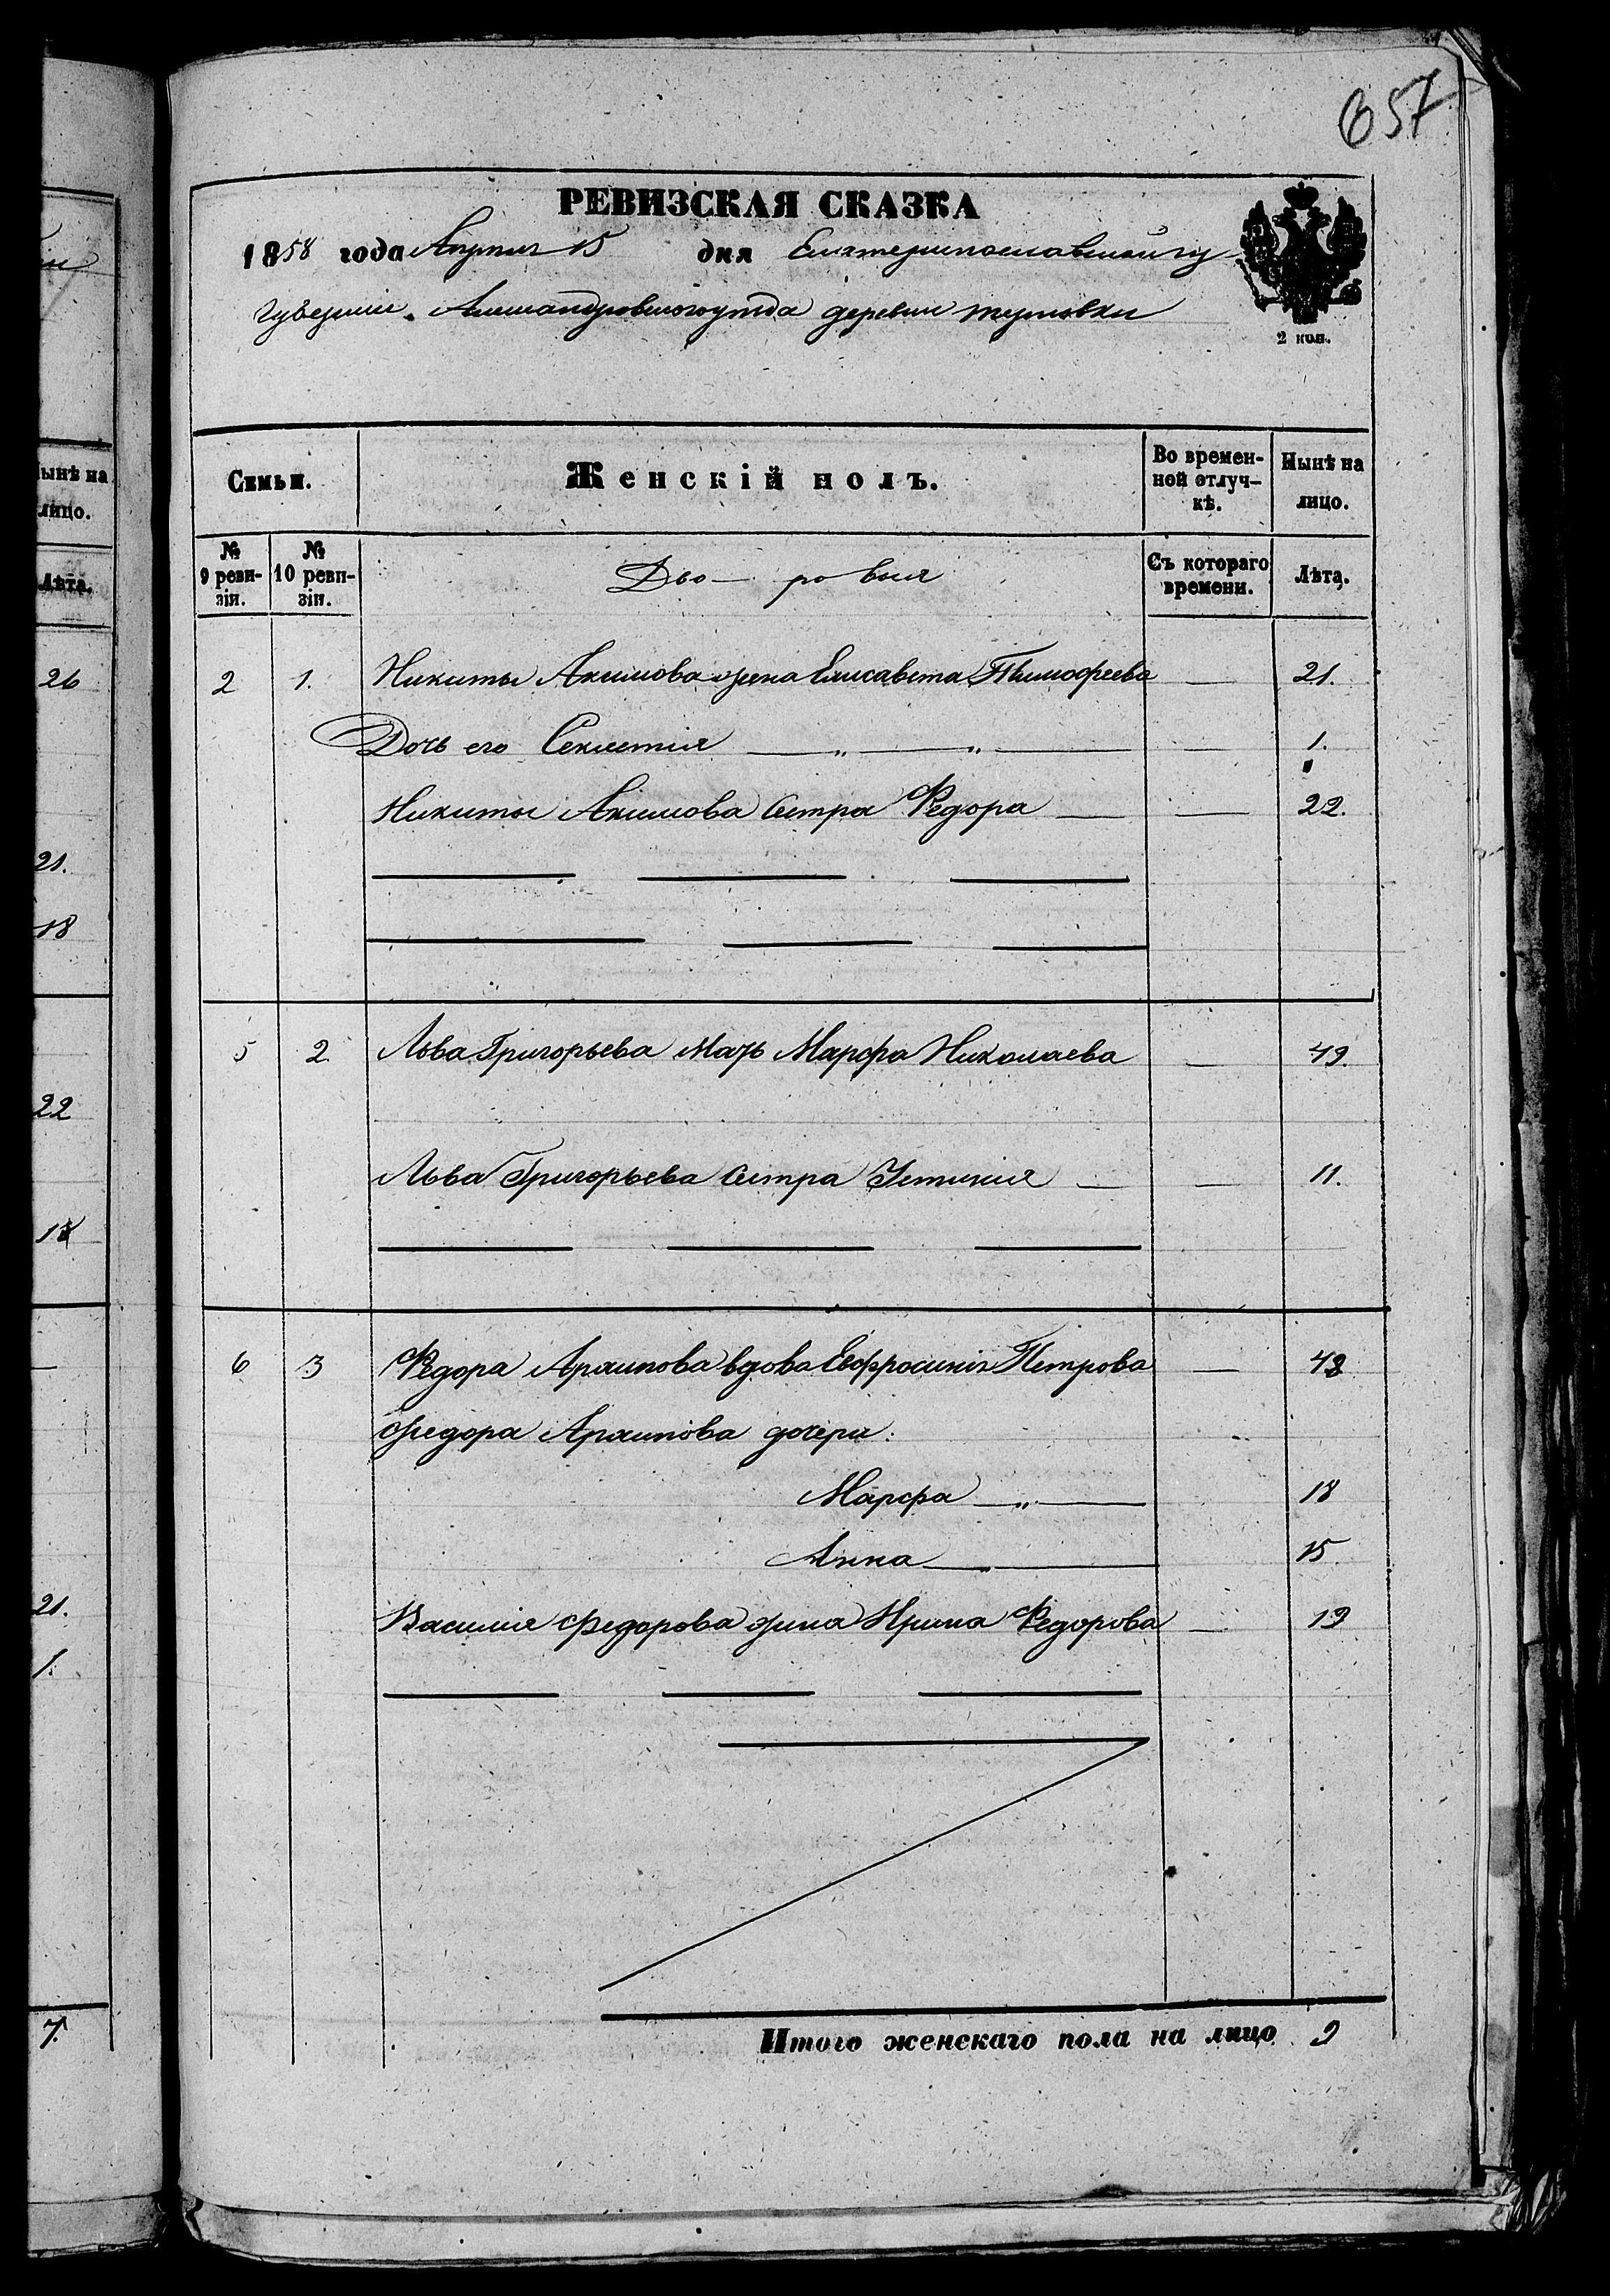 657
РЕВИЗСКАЯ СКАЗКА
1858 года Апреля 15 дня Екатеринославской гу
Губернии. Александровского уезда деревни
2 коп.
Семьи.
Женскій полъ.
Во времен-
ной отлуч-
кѣ.
Нынѣ на
лицо.
№
9 реви-
зіи.
№
10 реви-
зіи.
Дво — ровыя
Съ котораго
времени.
Лѣта.
2 1. Никиты Акимова жена Елисавета Тимофеева — 21.
Дочь его Секлетия — „ — „ — — 1.
Никиты Акимова Сестра Федора — — 22.
5 2. Льва Григорьева Мать Марфа Николаева — 49.
Льва Григорьева Сестра Устиния — — 11.
6 3 Федора Архипова вдова Евфросиния Петрова — 48
Федора Архипова дочери:
Марфа — „ — 18
Анна — 15.
Василия Федорова жена Ирина Федорова — 19
Итого женскаго пола на лицо 9
ынѣ на
лицо.
Лѣта.
26
21.
18
22
18
21.
1.
7.